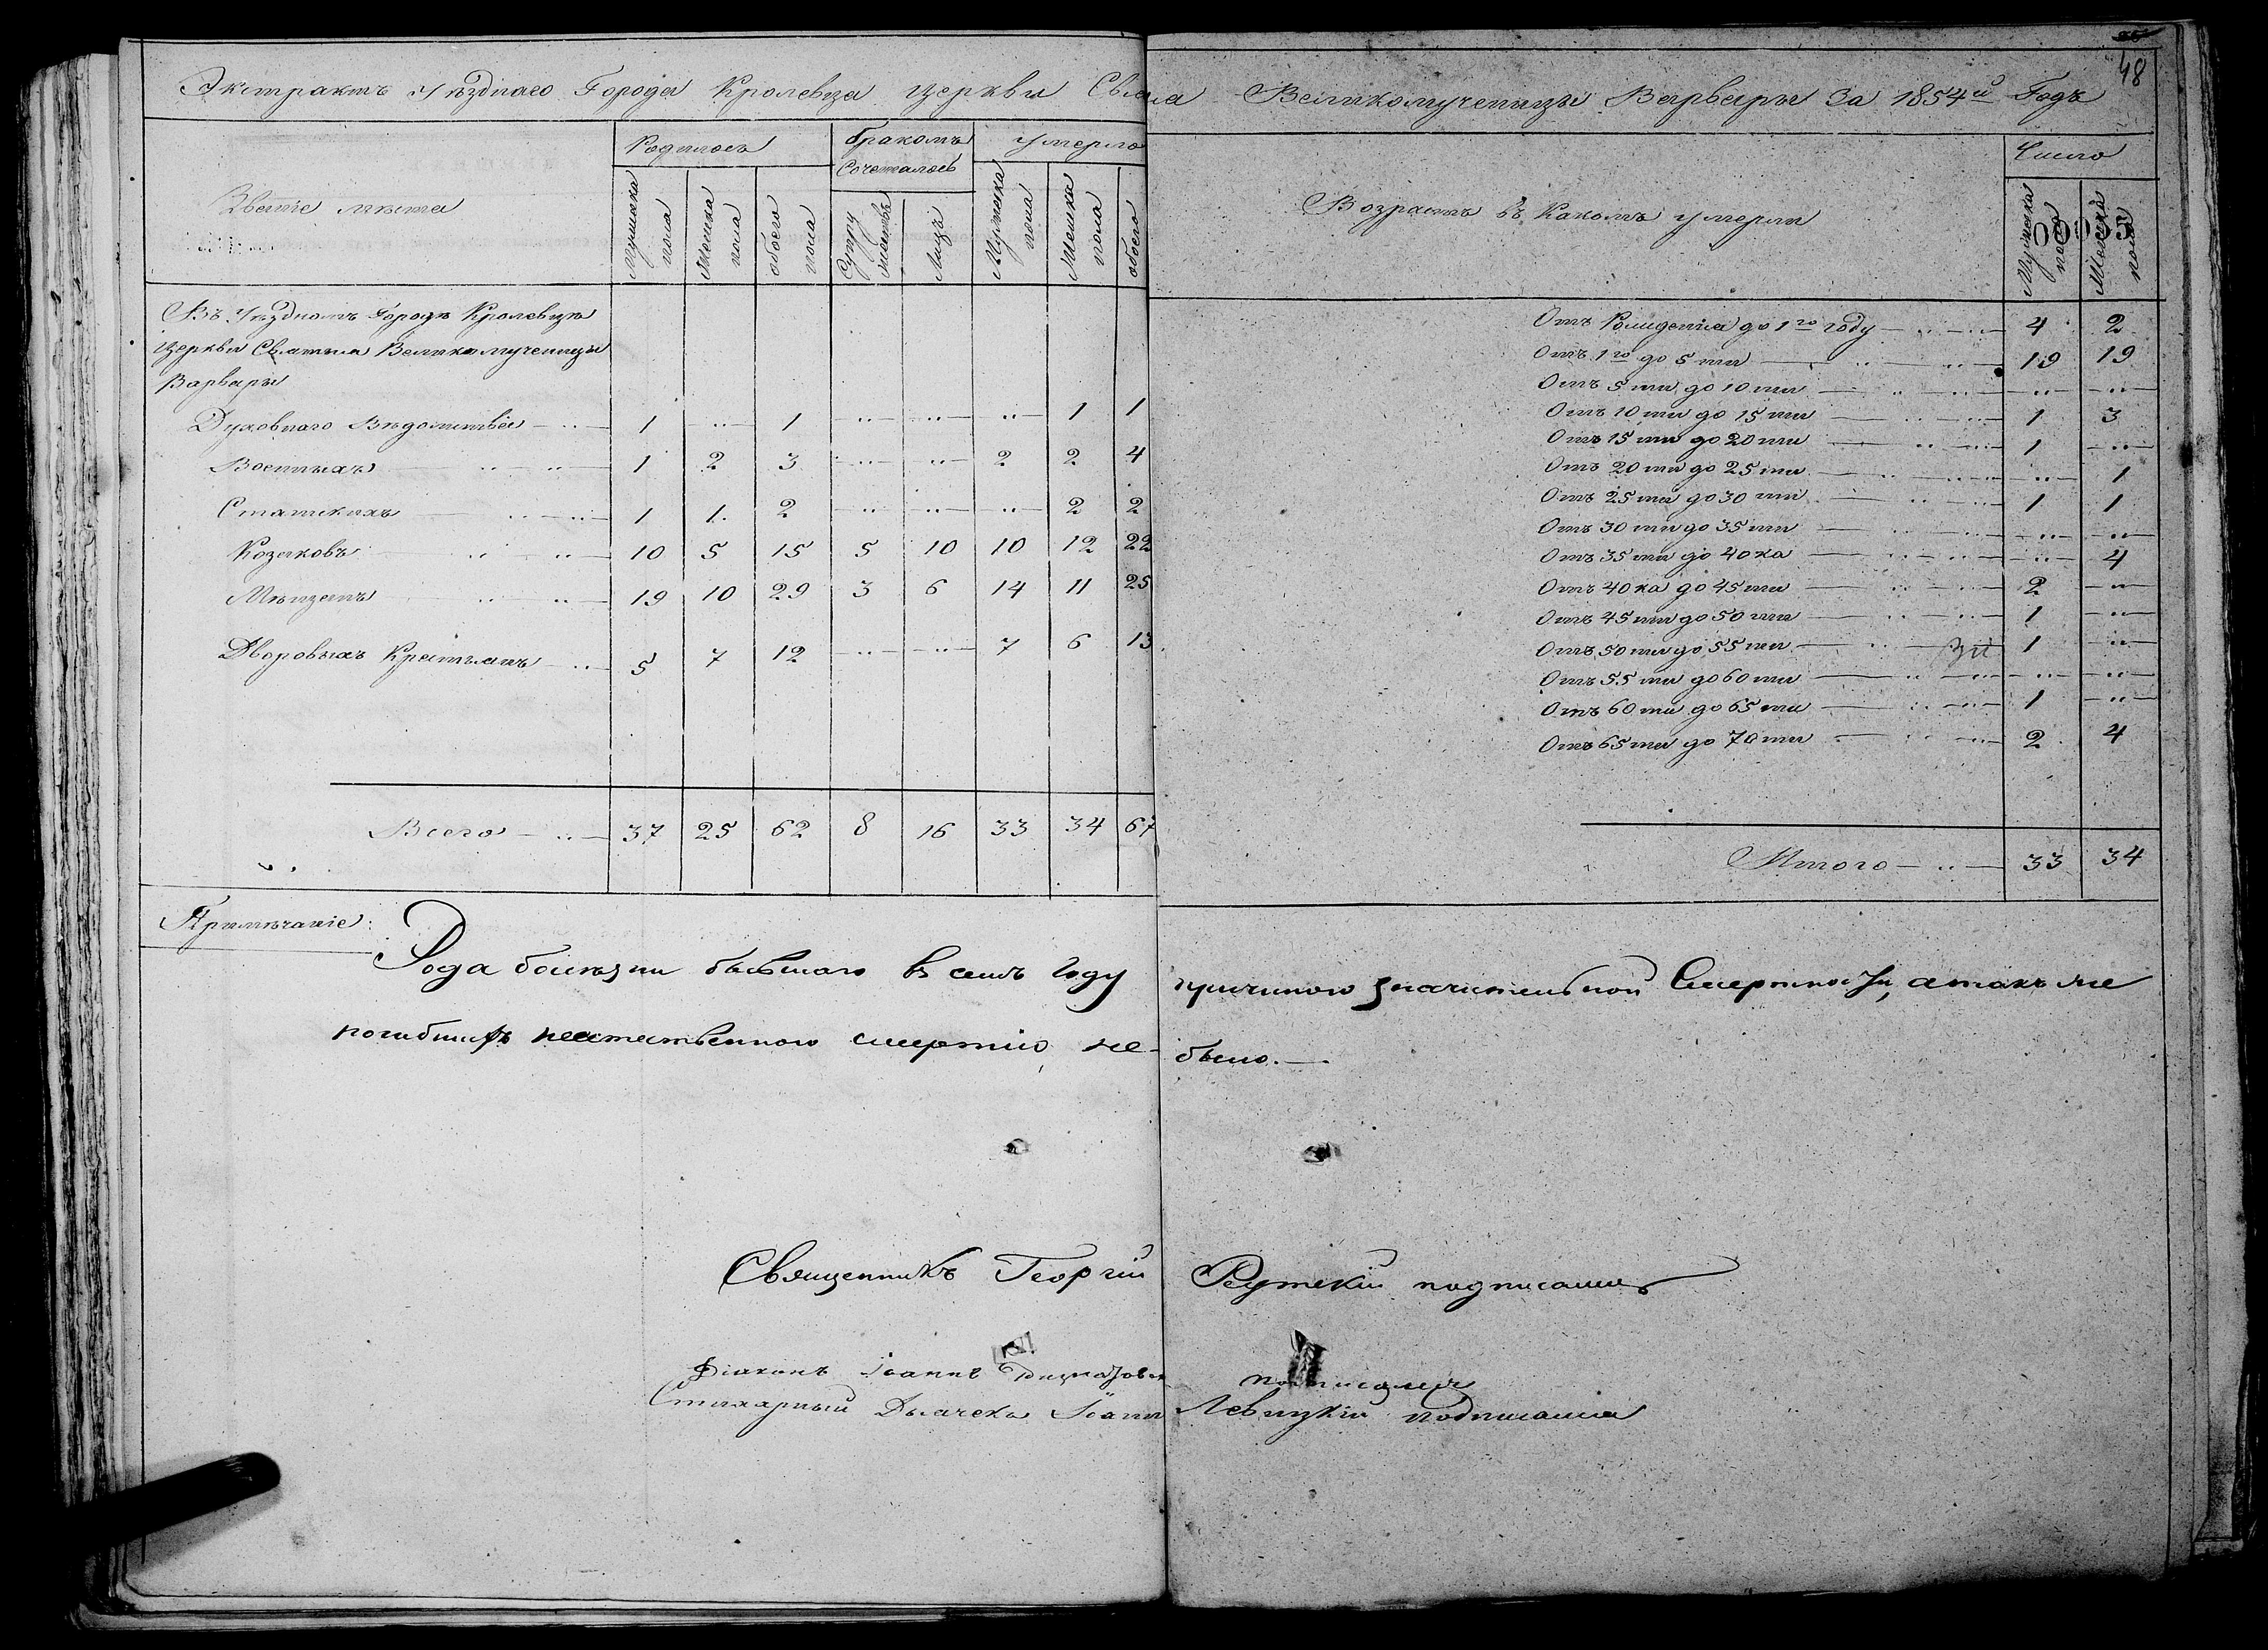 48
Экстрактъ Уѣзднаго Города Кролевца церкви Святыя Великомученицы Варвары За 1854й Годъ
Званіе мѣста
Родилось
Бракомъ Сочеталось
Умерло
Мужеска пола
Женска пола
обоего пола
Супружествъ
Лицъ
Мужеска пола
Женска пола
обоего
Возрастъ въ Какомъ умерли
Число
Мужеска пола
Женска пола
Въ Уѣздномъ Городѣ Кролевцѣ
церкви Святыя Великомученицы
Варвары
Духовнаго Вѣдомства 1 " 1 " " " 1 1
Военныхъ 1 2 3 " " 2 2 4
Статскихъ 1 1 2 " " " 2 2
Козаковъ 10 5 15 5 10 10 12 22
Мѣщанъ 19 10 29 3 6 14 11 25
Дворовыхъ Крестьянъ 5 7 12 " " 7 6 13
Всего 37 25 62 8 16 33 34 67
Отъ Рожденія до 1го году 4 2
Отъ 1го до 5 ти 19 19
Отъ 5 ти до 10 ти " "
Отъ 10 ти до 15 ти 1 3
Отъ 15 ти до 20 ти 1 "
Отъ 20 ти до 25 ти " 1
Отъ 25 ти до 30 ти 1 1
Отъ 30 ти до 35 ти " "
Отъ 35 ти до 40 ка " 4
Отъ 40 ка до 45 ти 2 "
Отъ 45 ти до 50 ти 1 "
Отъ 50 ти до 55 ти 1 "
Отъ 55 ти до 60 ти " "
Отъ 60 ти до 65 ти 1 "
Отъ 65 ти до 70 ти 2 4
Итого 33 34
Примѣчаніе:
Рода болѣзни бывшаго въ семъ году причиною значительной Смертности, а такъ же
погибшихъ неестественною смертію, не было.
Священникъ Георгій Рутскій подписался
Діаконъ Іоаннъ подписался
Стихарный Дьячекъ Іоаннъ Левицкій подписался